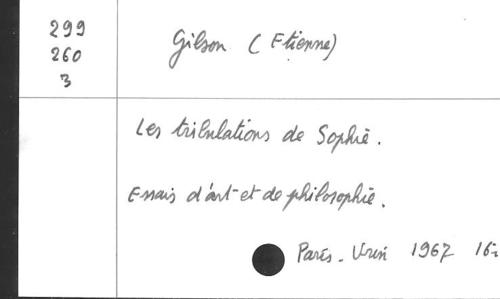 299
260
3
Gilson (Etienne)
Les tribulations de Sophie.
Essais d'art et de philosophie.
Paris - Vrin 1967 16